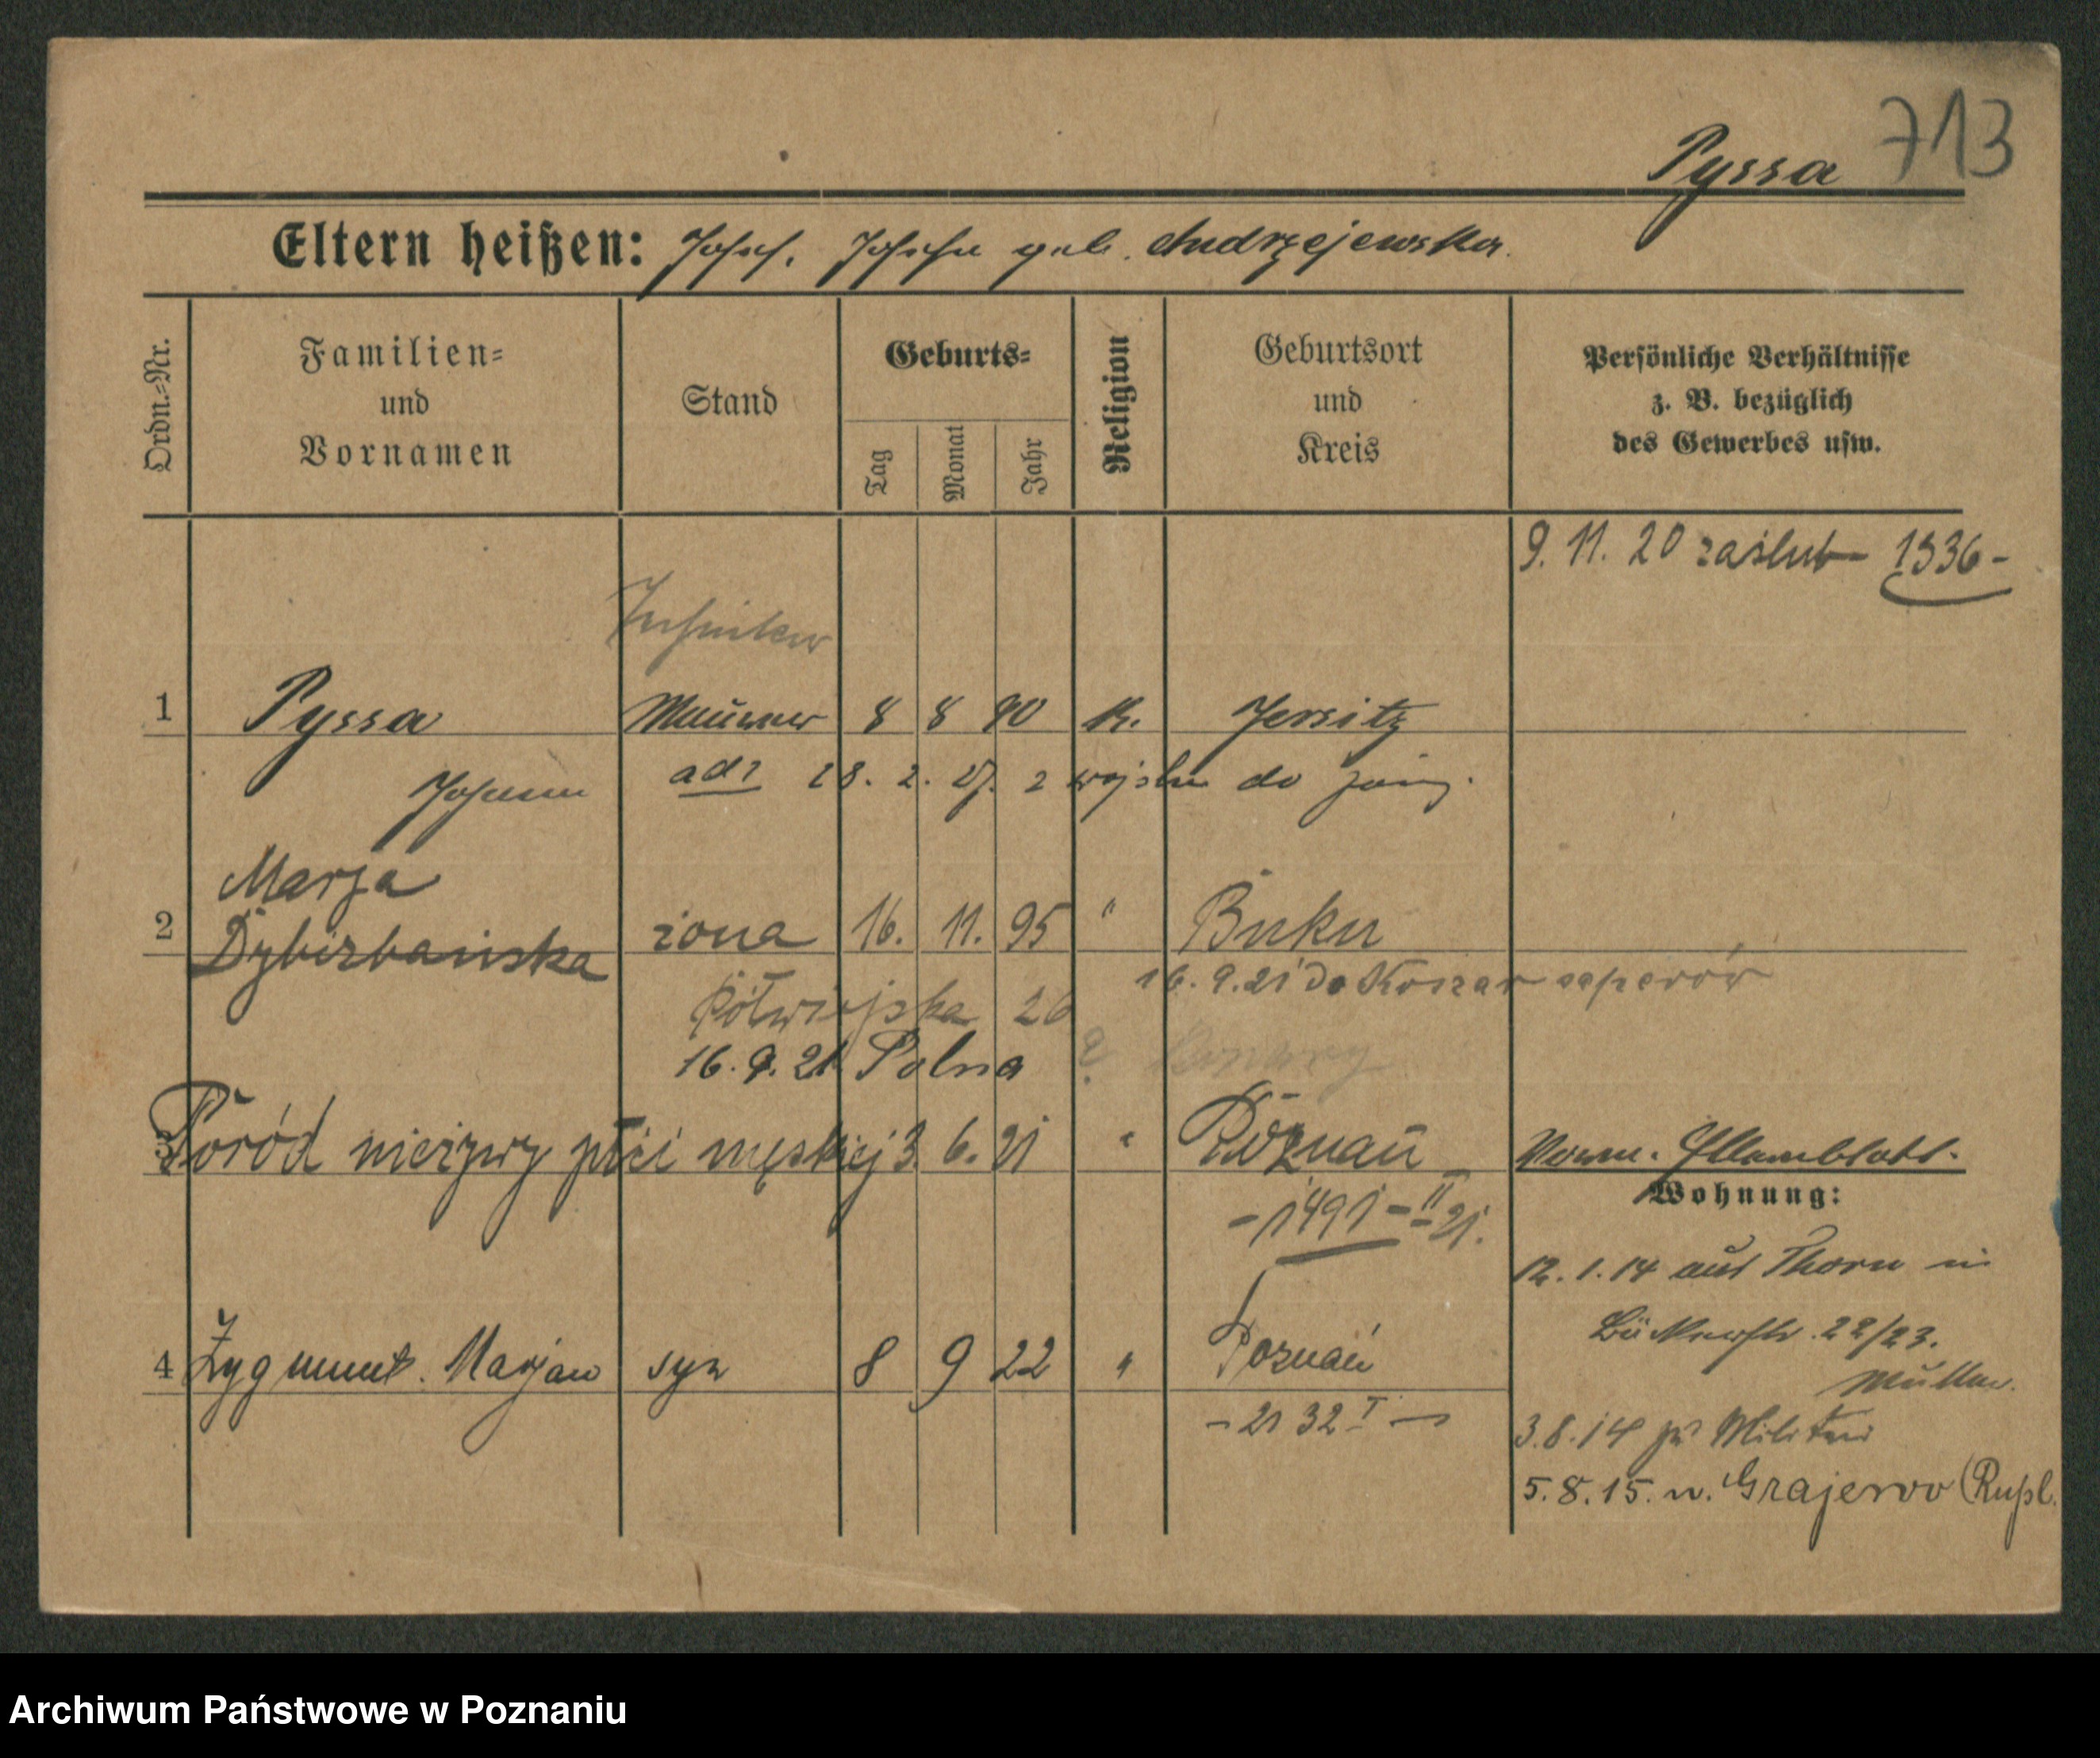 713
Pyssa
Eltern heißen: Josef, Josefa geb. Andrzejewska.
Ordn.-Nr.
Familien-
und
Vornamen
Stand
Geburts-
Tag
Monat
Jahr
Religion
Geburtsort
und
Kreis
Persönliche Verhältnisse
z. B. bezüglich
des Gewerbes usw.
9. 11. 20 zaślub 1536-
Techniker
1 Pyssa Maurer 8 8 90 K. Jersitz
Johann
28. 2. 27. z wojska do
Marja
2 żona 16. 11. 95 " Buku
16. 9. 21 do Koszar saperów
Półwiejska 26
16. 9. 21 Polna
3 Poród nieżywy płci męskiej 3 6. 21 " Poznań
Verm. Stammblatt.
-1491-II 21.
Wohnung:
12. 1. 14 aus Thorn in
Bückerstr. 22/23.
4 Zygmunt. Marjan syn 8 9 22 " Poznań
Mutter.
-2132 I-
3. 8. 14 zu Militär
5. 8. 15. n. Grajewo (Rußl.
Archiwum Państwowe w Poznaniu